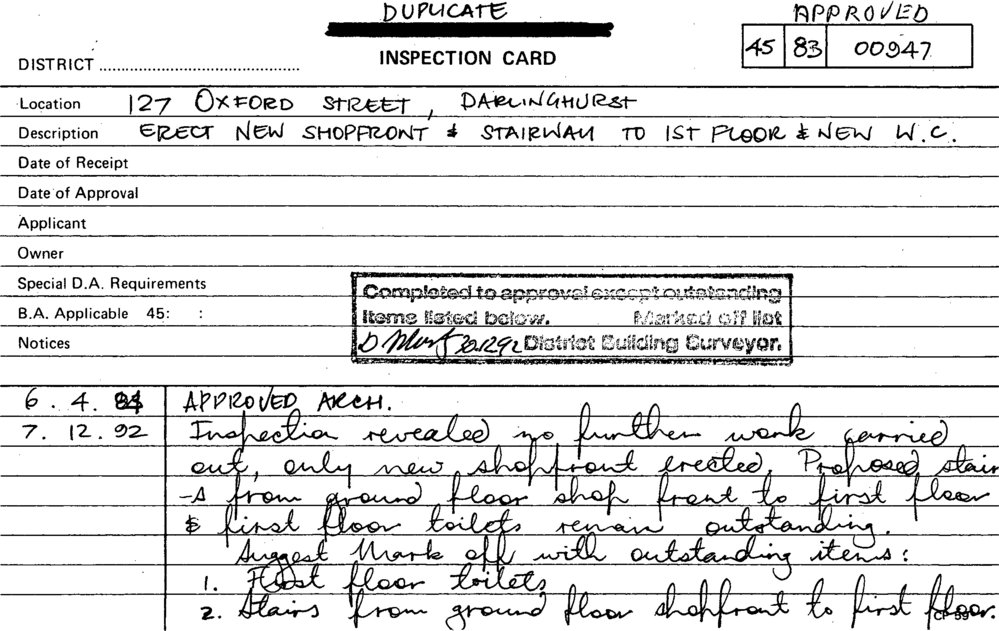 DUPLICATE
APPROVED
INSPECTION CARD
45 83 00947
DISTRICT
Location 127 OXFORD STREET, DARLINGHURST
Description ERECT NEW SHOPFRONT & STAIRWAY TO 1ST FLOOR & NEW W.C.
Date of Receipt
Date of Approval
Applicant
Owner
Special D.A. Requirements
B.A. Applicable 45: :
Notices
Completed to approval except outstanding
Items listed below. Marked off list
30.12.92 District Building Surveyor.
6. 4. 84 APPROVED ARCH.
7. 12. 92 Inspection revealed no further work carried
out, only new shopfront erected. Proposed stair
-s from ground floor shop front to first floor
& first floor toilets remain outstanding.
Suggest Mark off with outstanding items:
1. First floor toilets
2. Stairs from ground floor shopfront to first floor.